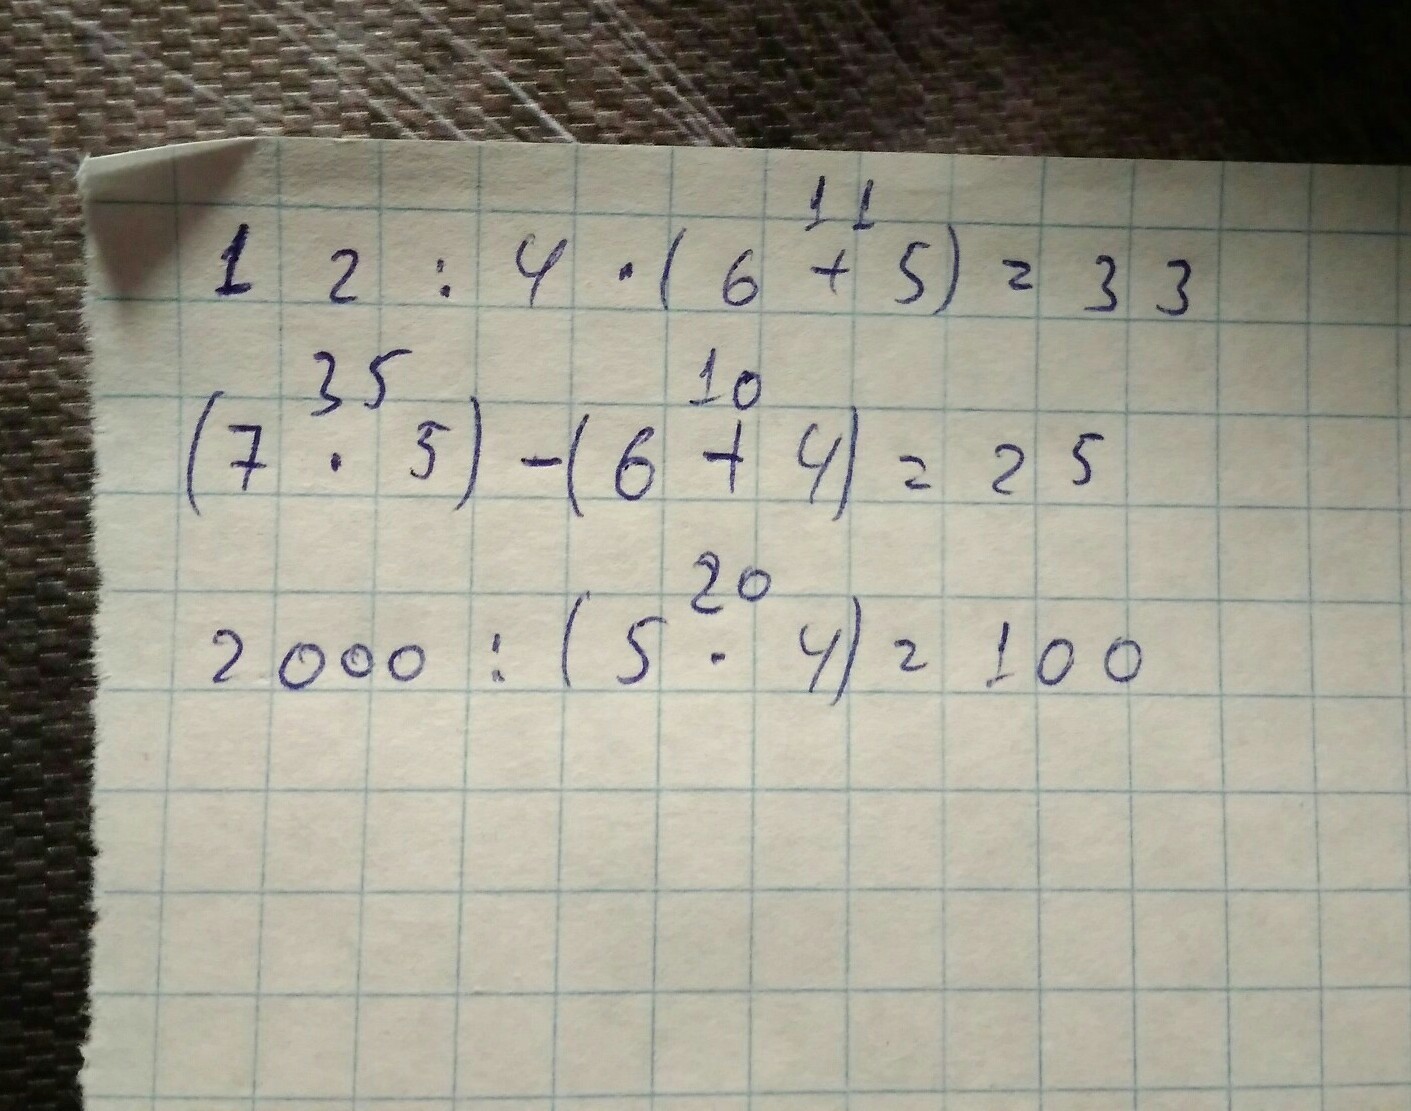 11
12 : 4 · (6 + 5) = 33
35 10
(7 · 5) - (6 + 4) = 25
20
2000 : (5 · 4) = 100